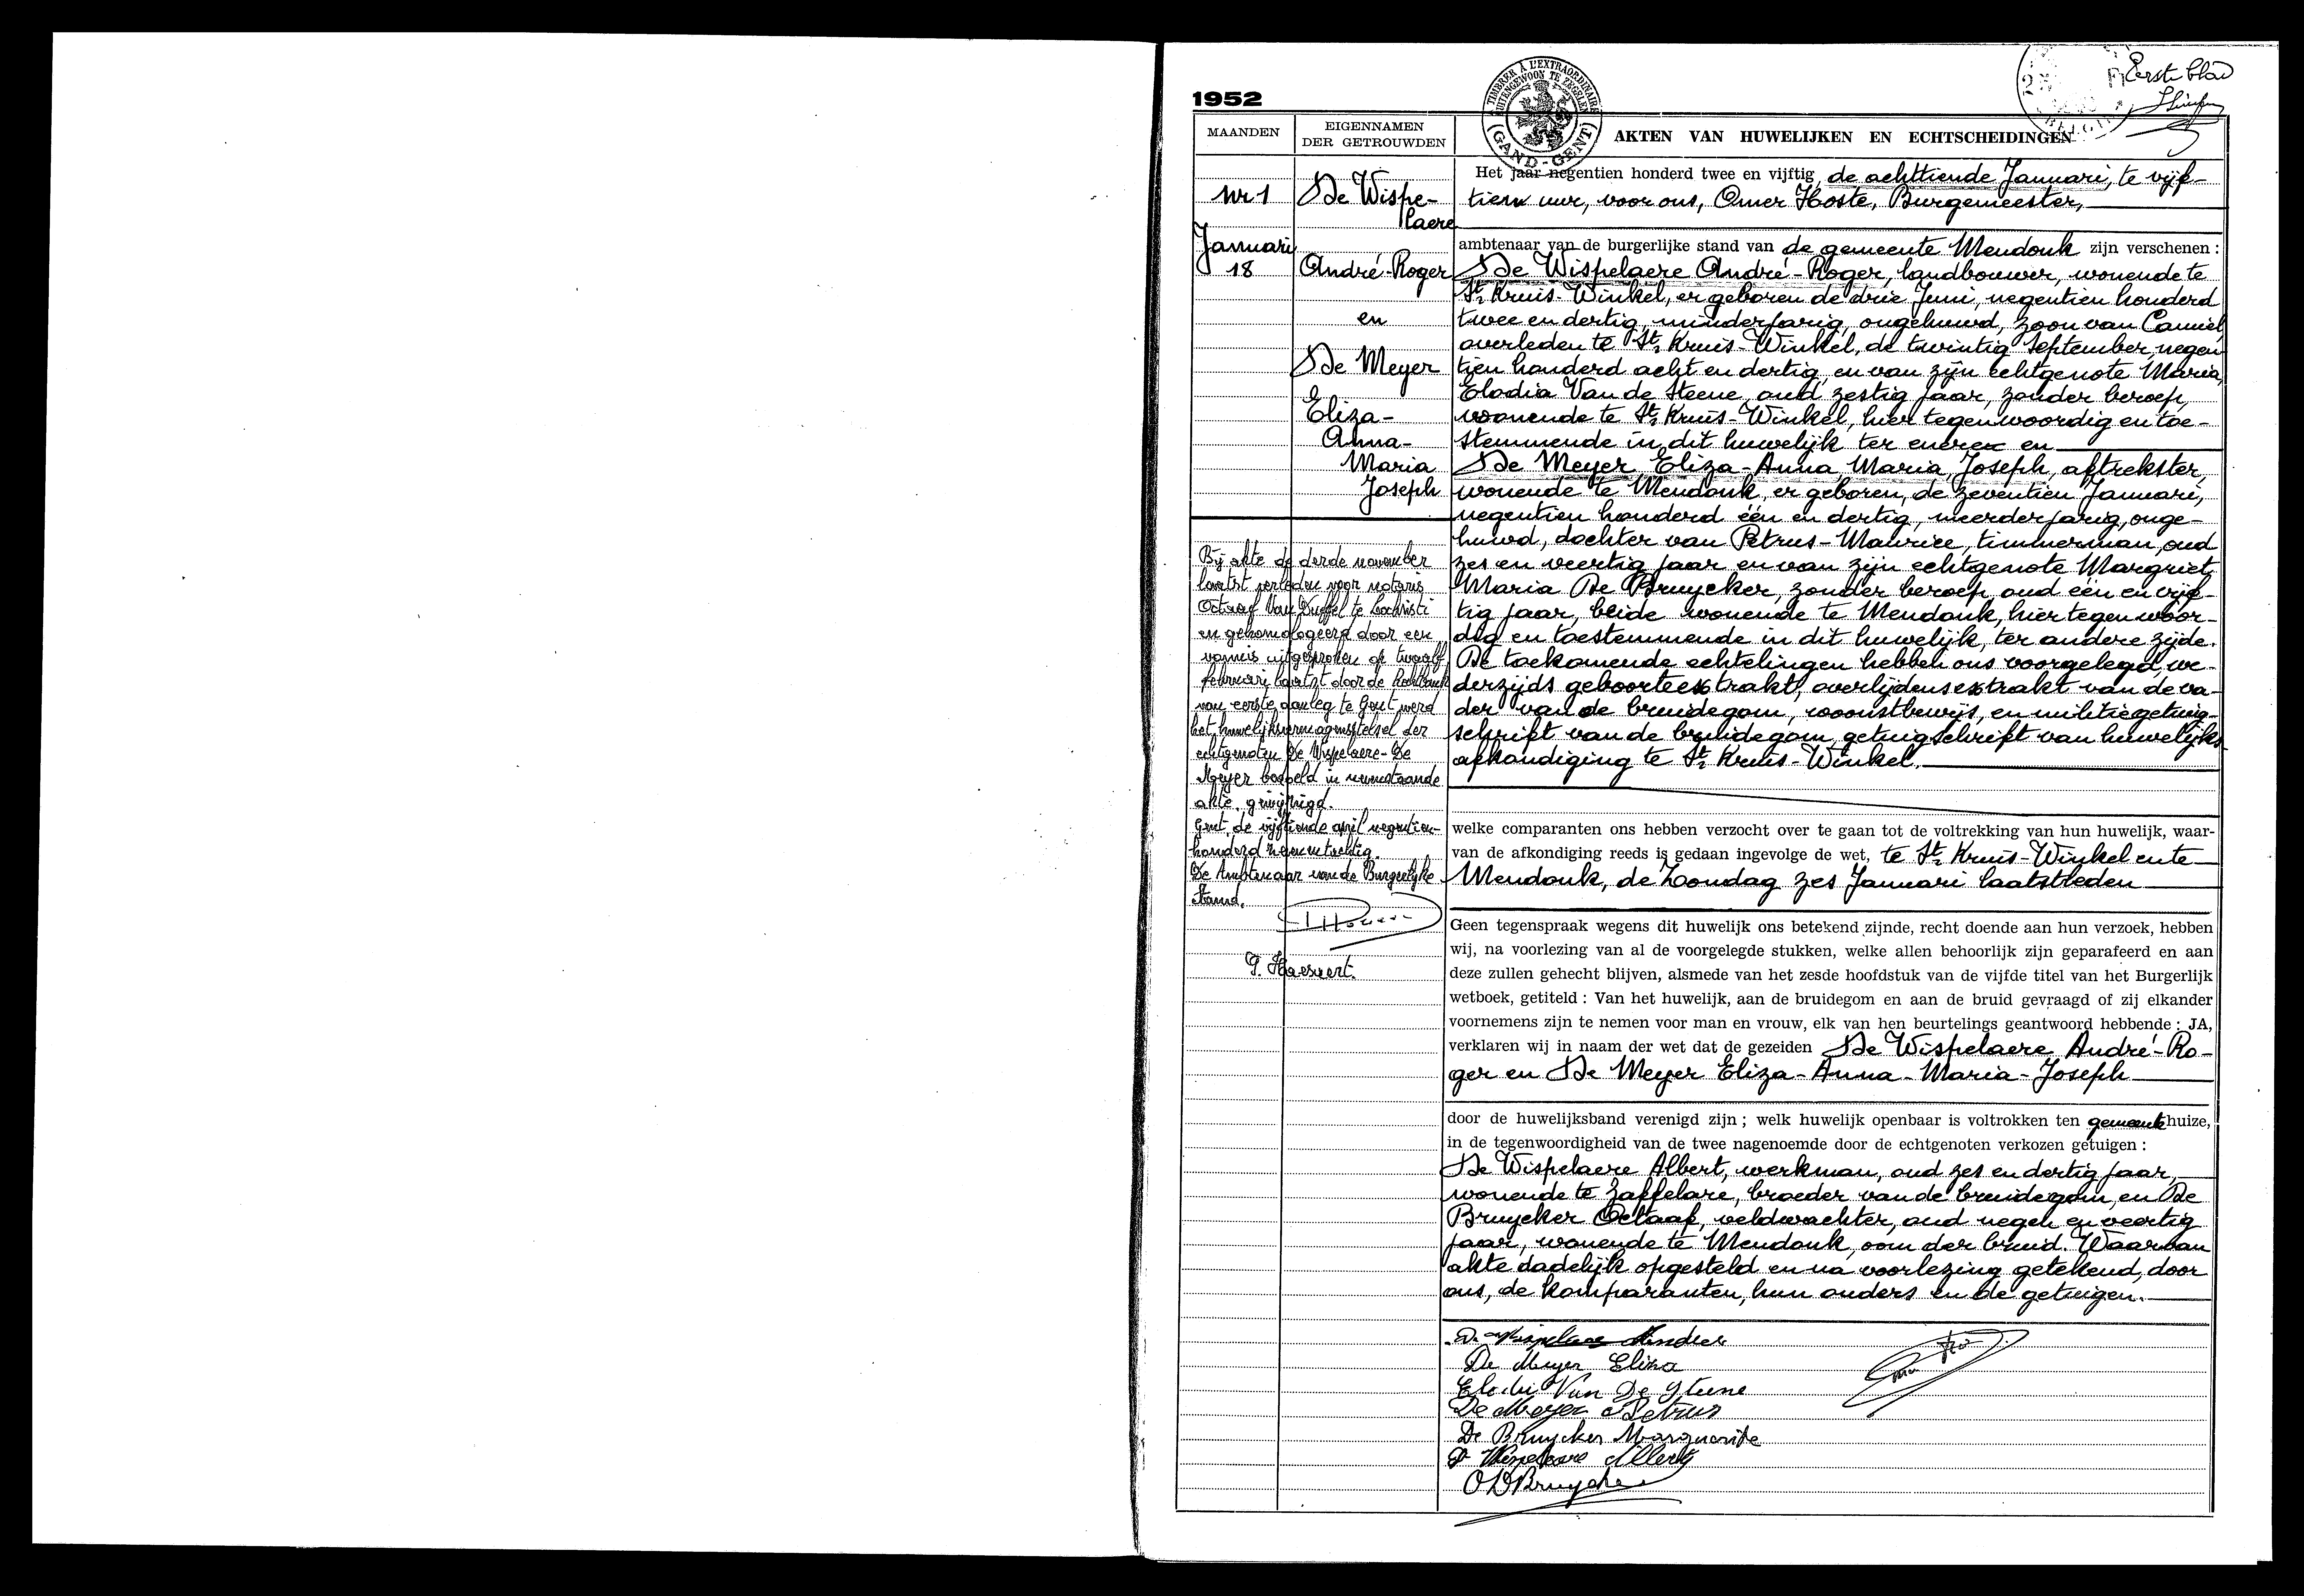 1952
Eerste blad
TIMBRER À L'EXTRAORDINAIRE
BUITENGEWOON TE ZEGELEN
(GAND-GENT)
MAANDEN
EIGENNAMEN
DER GETROUWDEN
AKTEN VAN HUWELIJKEN EN ECHTSCHEIDINGEN
Nr 1
Januari
18
De Wispe-
laere
André-Roger
en
De Meyer
Eliza-
Anna-
Maria
Joseph
Bij akte de derde november
laatst verleden voor notaris
Octaaf Van Duffel te Lochristi
en gehomologeerd door een
vonnis uitgesproken de twaalf
februari laatst door de Rechtbank
van eerste aanleg te Gent werd
het huwelijksvermogensstelsel der
echtgenoten De Wispelaere-De
Meyer bedoeld in nevenstaande
akte, gewijzigd.
Gent, de vijftiende april negentien-
honderd
De Ambtenaar van de Burgerlijke
Stand,
Het jaar negentien honderd twee en vijftig, de achttiende Januari, te vijf-
tien uur, voor ons, Omer Hoste, Burgemeester,
ambtenaar van de burgerlijke stand van de gemeente Mendonk zijn verschenen :
De Wispelaere André-Roger, landbouwer, wonende te
St Kruis-Winkel, er geboren de drie Juni, negentien honderd
twee en dertig, minderjarig, ongehuwd, zoon van Camiel,
overleden te St Kruis-Winkel, de twintig September, negen-
tien honderd acht en dertig, en van zijn echtgenote Maria,
Elodia Van de Steene, oud zestig jaar, zonder beroep,
woonende te St Kruis-Winkel, hier tegenwoordig en toe-
stemmende in dit huwelijk ter enerex en
De Meyer Eliza-Anna Maria Joseph, aftrekster,
wonende te Mendonk, er geboren, de zeventien Januari,
negentien honderd één en dertig, meerderjarig, onge-
huwd, dochter van Petrus-Maurice, timmerman, oud
zes en veertig jaar en van zijn echtgenote Margriet
Maria De Bruycker, zonder beroep, oud één en vijf-
tig jaar, beide wonende te Mendonk, hier tegenwoor-
dig en toestemmende in dit huwelijk, ter andere zijde.
De toekomende echtelingen hebben ons voorgelegd, we-
derzijds geboorteextrakt, overlijdensextrakt van de va-
der van de bruidegom, woonstbewijs, en militiegetuig-
schrift van de bruidegom, getuigschrift van huwelijks-
afkondiging te St Kruis-Winkel.
welke comparanten ons hebben verzocht over te gaan tot de voltrekking van hun huwelijk, waar-
van de afkondiging reeds is gedaan ingevolge de wet, te St Kruis-Winkel en te
Mendonk, de Zondag zes Januari laatstleden
Geen tegenspraak wegens dit huwelijk ons betekend zijnde, recht doende aan hun verzoek, hebben
wij, na voorlezing van al de voorgelegde stukken, welke allen behoorlijk zijn geparafeerd en aan
deze zullen gehecht blijven, alsmede van het zesde hoofdstuk van de vijfde titel van het Burgerlijk
wetboek, getiteld : Van het huwelijk, aan de bruidegom en aan de bruid gevraagd of zij elkander
voornemens zijn te nemen voor man en vrouw, elk van hen beurtelings geantwoord hebbende : JA,
verklaren wij in naam der wet dat de gezeiden De Wispelaere André-Ro-
ger en De Meyer Eliza-Anna-Maria-Joseph
door de huwelijksband verenigd zijn ; welk huwelijk openbaar is voltrokken ten gemeentehuize,
in de tegenwoordigheid van de twee nagenoemde door de echtgenoten verkozen getuigen :
De Wispelaere Albert, werkman, oud zes en dertig jaar,
wonende te Zaffelare, broeder van de bruidegom, en De
Bruycker Octaaf, veldwachter, oud negen en veertig
jaar, wonende te Mendonk, oom der bruid. Waarvan
akte dadelijk opgesteld en na voorlezing getekend, door
ons, de komparanten, hun ouders en de getuigen.
De Wispelaere Andree
De Meyer Eliza
Elodie Van De Steene
De Meyer Petrus
De Bruycker Marguerite
De Wispelaere Albert
O DBruycker